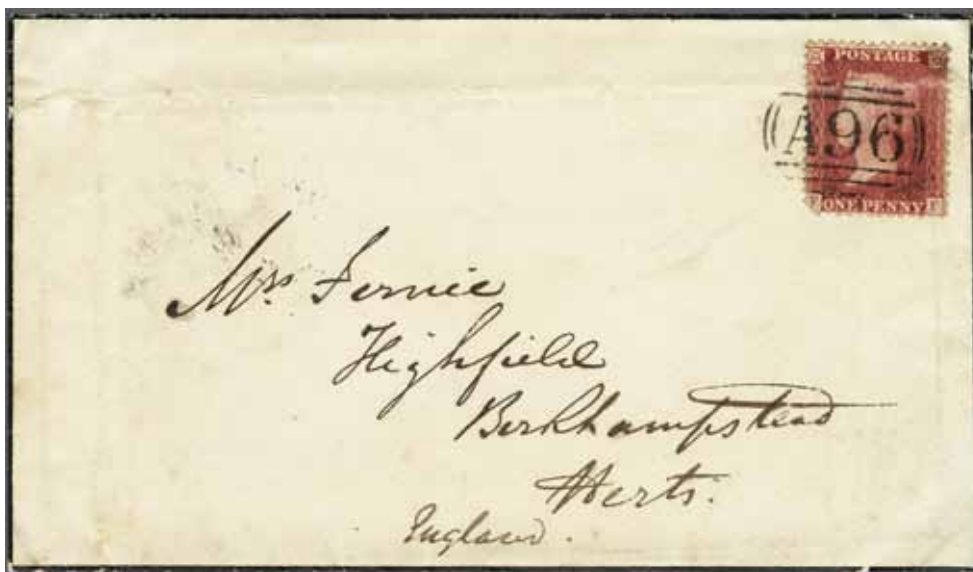 POSTAGE
A96
ONE PENNY
Mrs. Fernie
Highfield
Berkhampstead
Herts.
England.